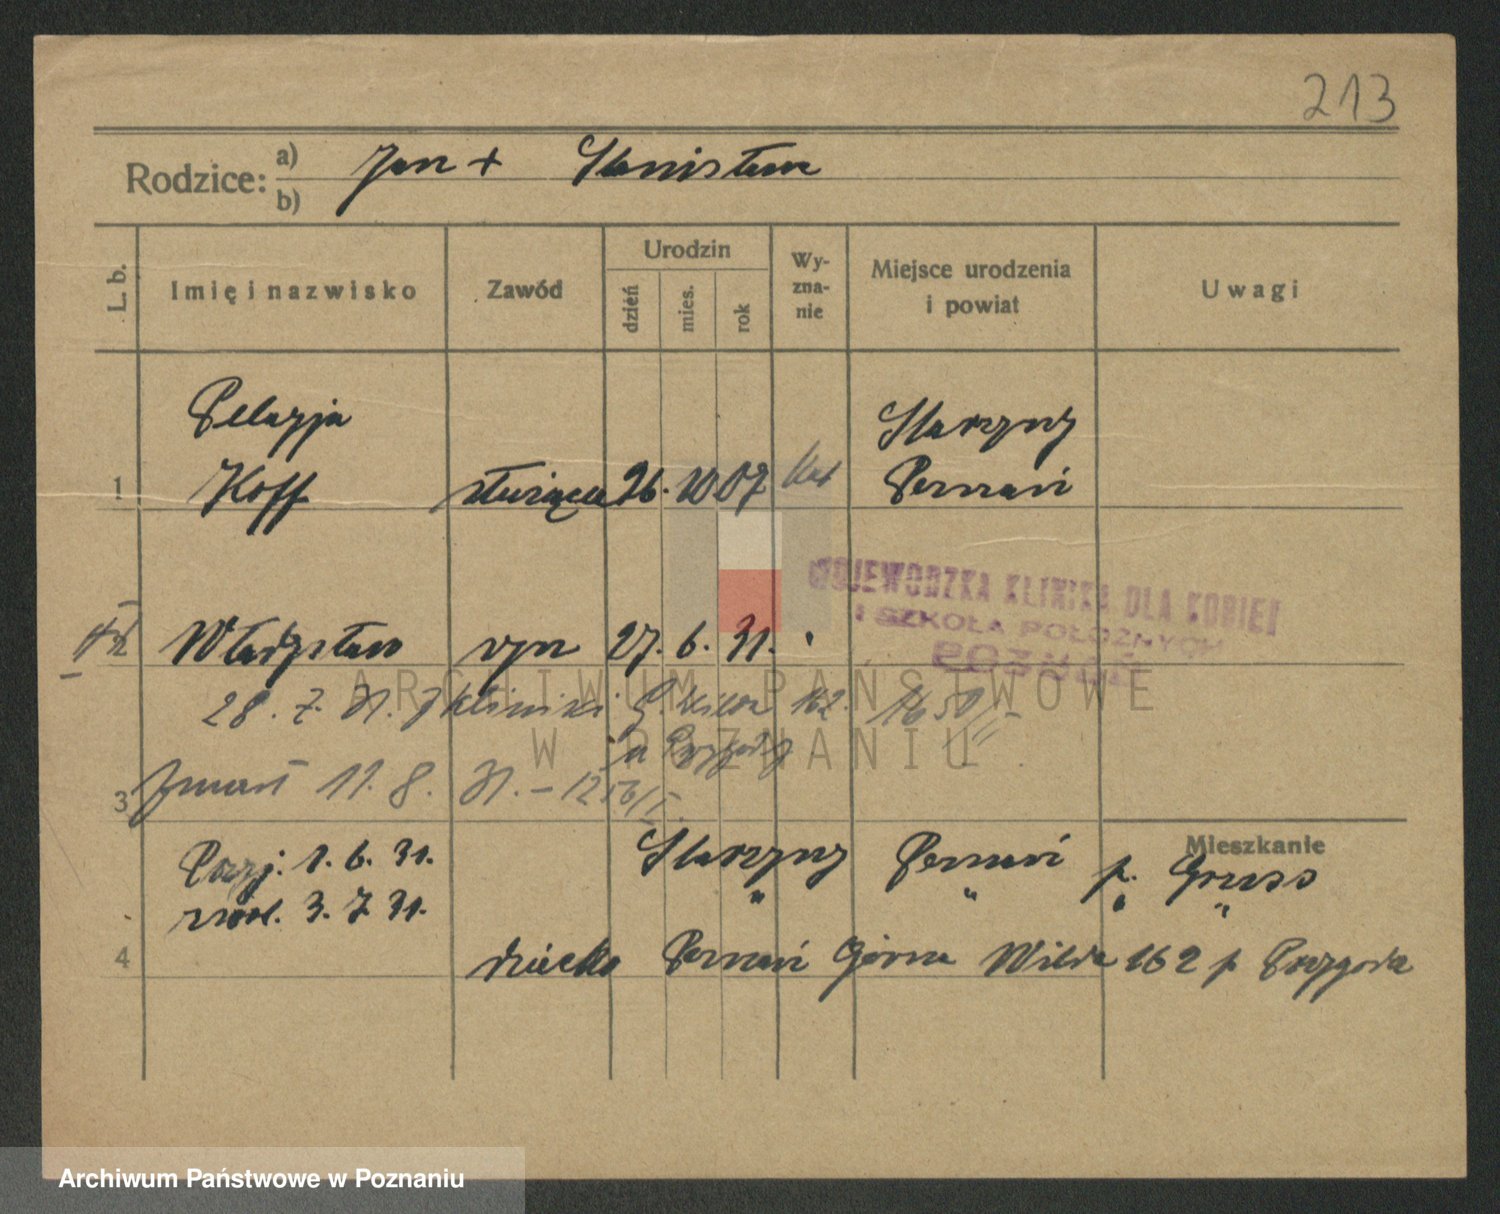 213
Rodzice: a) Jan + Stanisława
b)
L. b.
Imię i nazwisko
Zawód
Urodzin
dzień
mies.
rok
Wy-
zna-
nie
Miejsce urodzenia
i powiat
Uwagi
Pelagja
Koff
1
służąca 26. 10 07 kat
Starzyny
Poznań
WOJEWÓDZKA KLINIKA DLA KOBIET
I SZKOŁA POŁOŻNYCH
POZNAŃ
Władysław syn 27. 6. 31.
28. 7. 31. z kliniki G. Wilda 162.
u Przygody
3 zmarł 11. 8. 31. – 1256/I.
Mieszkanie
Przyj: 1. 6. 31. Starzyny Poznań p. Gruss
zwol. 3. 7 31. " " " "
4 dziecko Poznań Górna Wilda 162 p Przygoda
ARCHIWUM PAŃSTWOWE
W POZNANIU
Archiwum Państwowe w Poznaniu